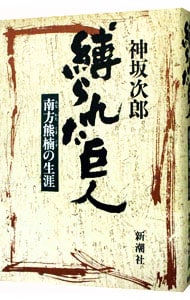 神坂次郎
縛られた巨人
南方熊楠の生涯
新潮社